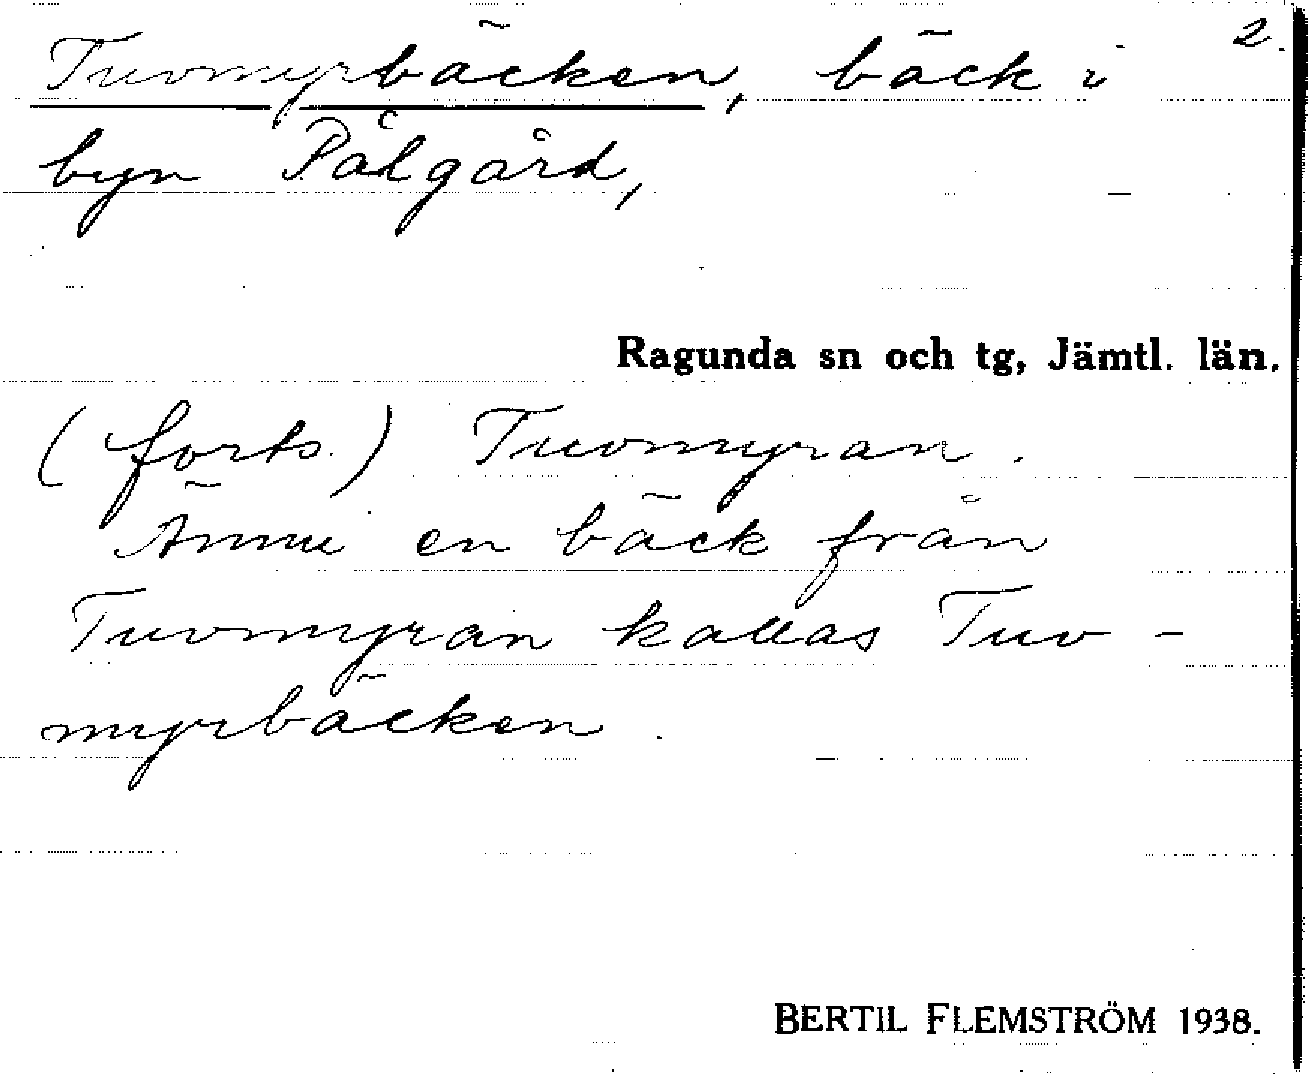 2.
Tuvmyrbäcken, bäck i
byn Pålgård,
Ragunda sn och tg, Jämtl. län.
(forts.) Tuvmyran.
Ännu en bäck från
Tuvmyran kallas Tuv-
myrbäcken.
BERTIL FLEMSTRÖM 1938.